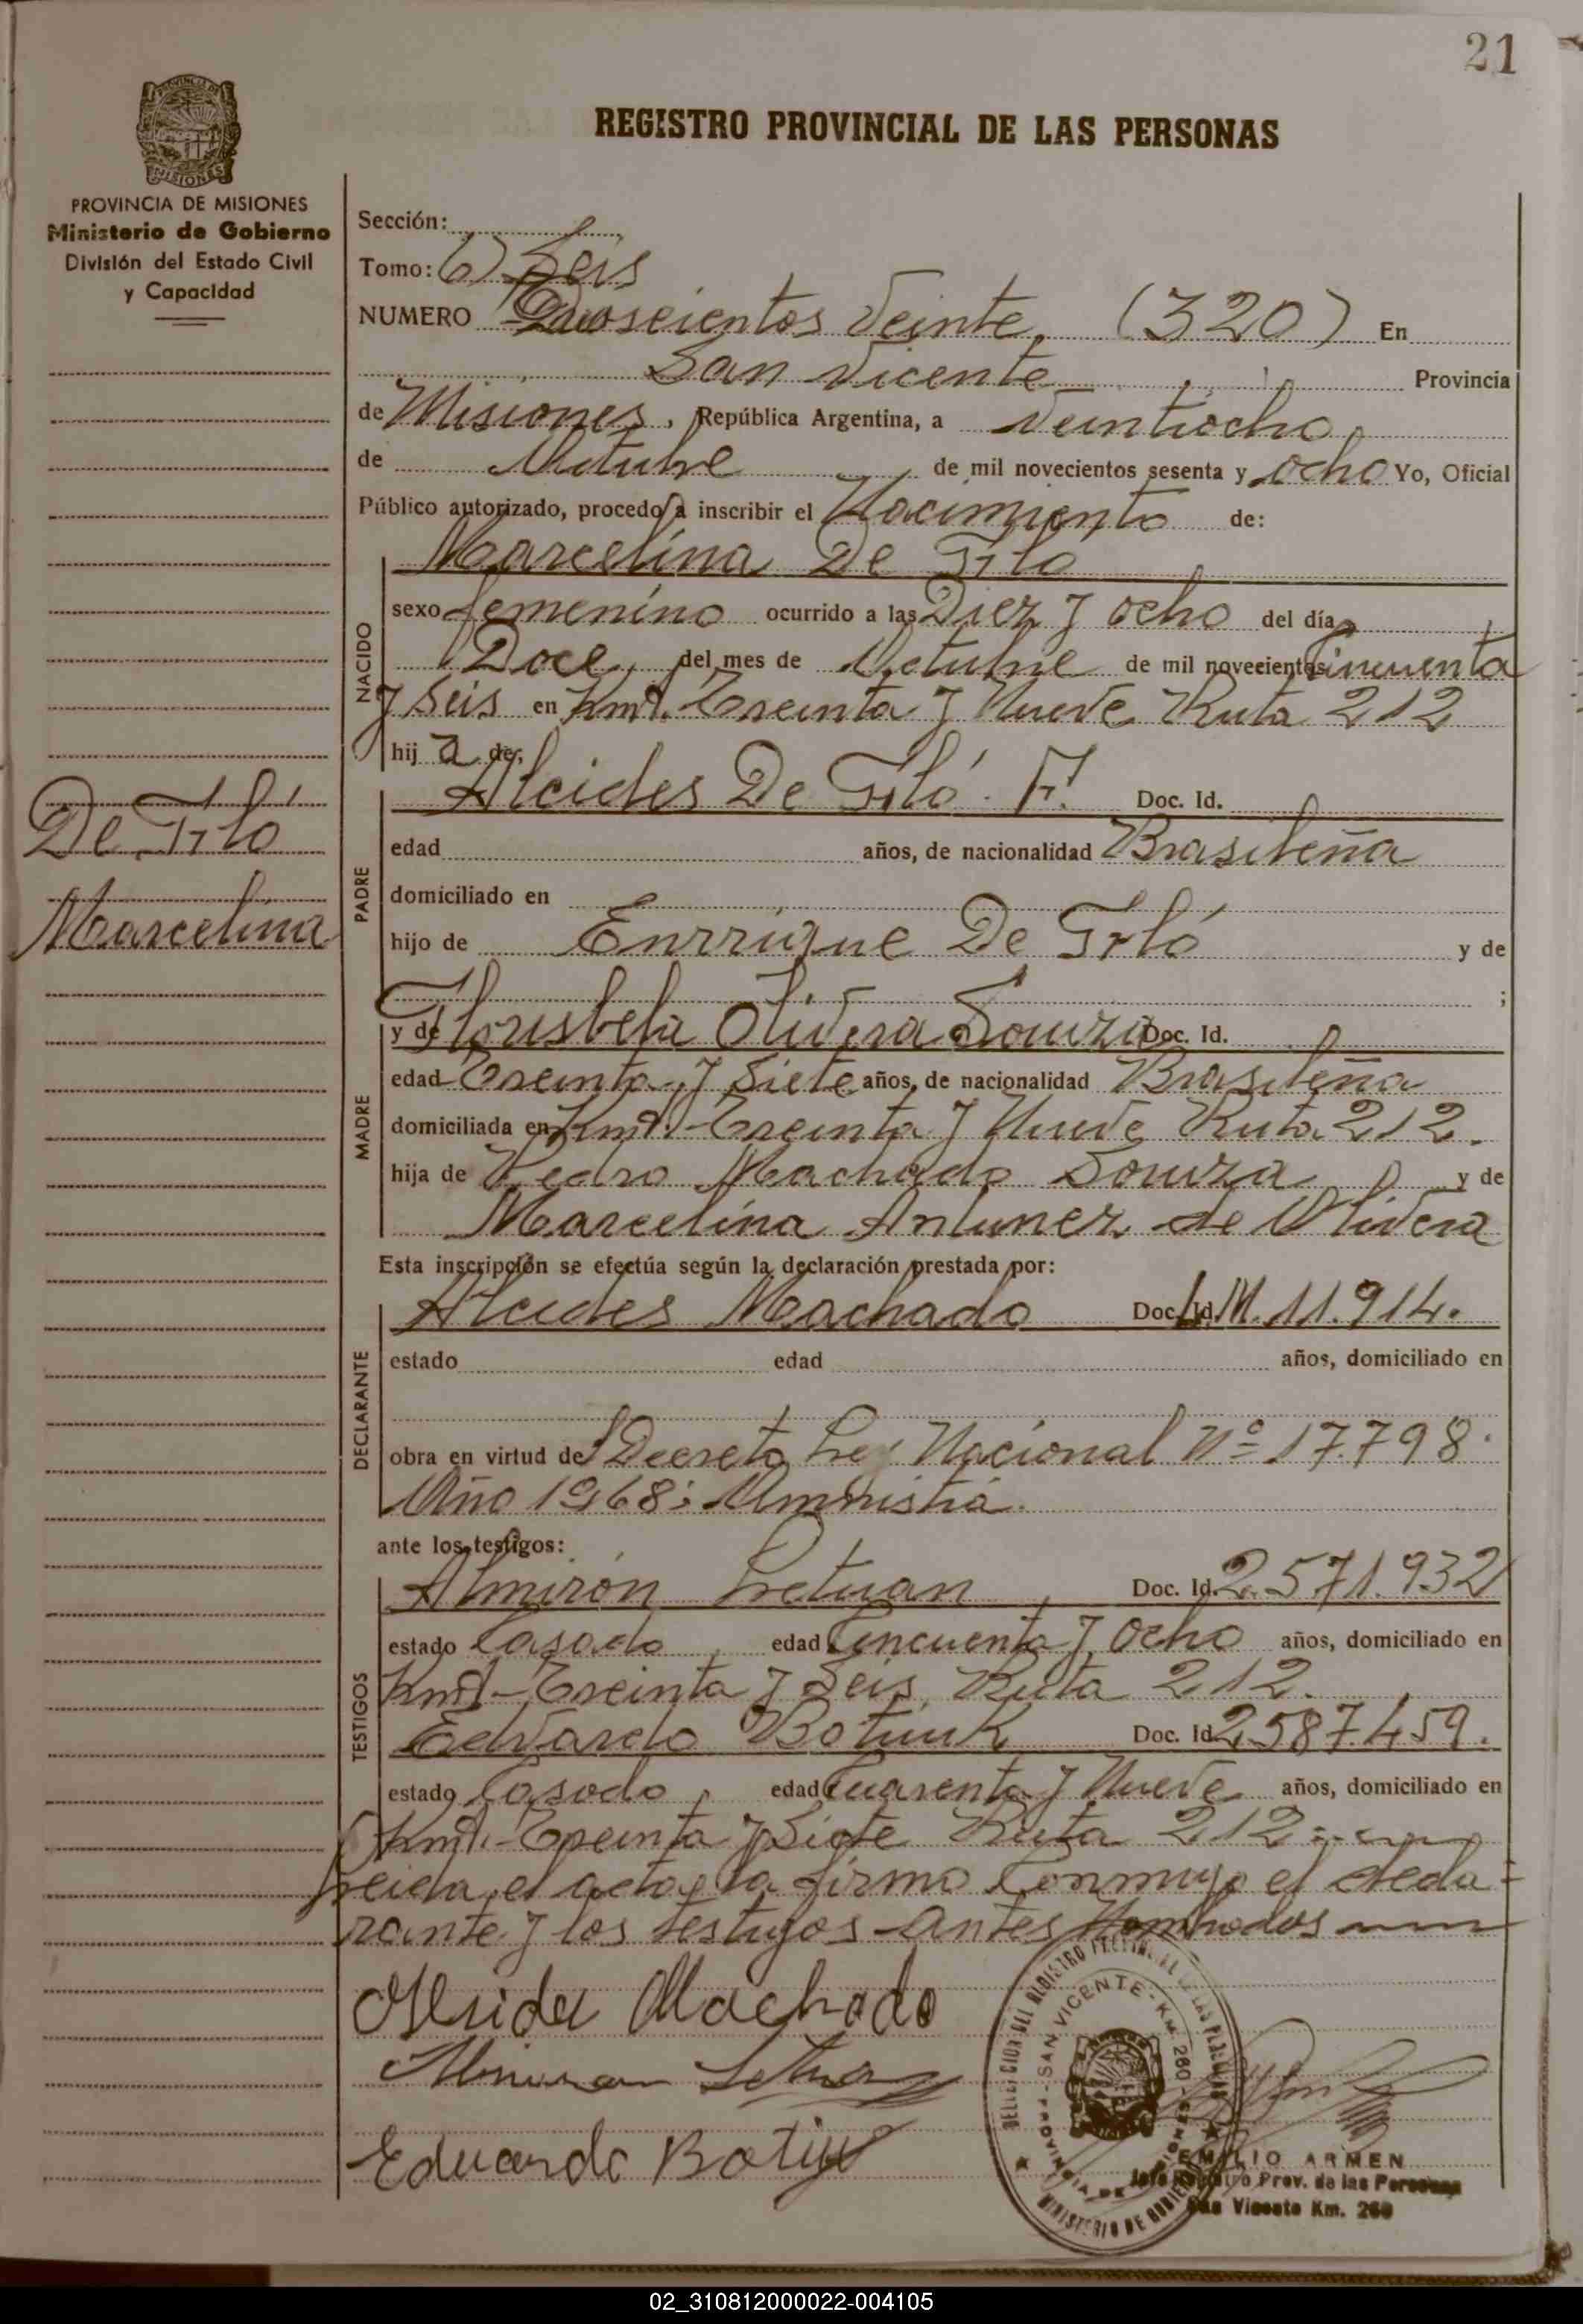 21
PROVINCIA DE MISIONES
Ministerio de Gobierno
División del Estado Civil
y Capacidad
REGISTRO PROVINCIAL DE LAS PERSONAS
Sección:
Tomo: 6) Seis
NUMERO Veinte, (320) En
San Vicente Provincia
de Misiones, República Argentina, a Veintiocho
de Octubre de mil novecientos sesenta y ocho Yo, Oficial
Público autorizado, procedo a inscribir el Nacimiento de:
Marcelina De
NACIDO
sexo femenino ocurrido a las Diez y ocho del día
Doce, del mes de Octubre de mil novecientos Cincuenta
y Seis en Kmt. Treinta y Nueve Ruta 212
hija de:
De
Marcelina
PADRE
Alcides De F. Doc. Id.
edad años, de nacionalidad Brasileña
domiciliado en
hijo de Enrrique De y de
;
MADRE
y de Florisbela Olivera Souza Doc. Id.
edad Treinta y Siete años, de nacionalidad Brasileña
domiciliada en Kmt.- Treinta y Nueve Ruta 212.
hija de Pedro Machado Souza y de
Marcelina Antunez de Olivera
Esta inscripción se efectúa según la declaración prestada por:
DECLARANTE
Alcides Machado Doc. Id. 11.914.
estado edad años, domiciliado en
obra en virtud de Decreto Ley Nacional Nº 17.798.
Año 1968; Amnistia.
ante los testigos:
TESTIGOS
Almirón Doc. Id. 2.571.932
estado Casado edad Cincuenta y Ocho años, domiciliado en
Kmt- Treinta y Seis, Ruta 212.
Edvardo Doc. Id. 2.587.459.
estado Casado, edad Cuarenta y Nueve años, domiciliado en
Kmt.- Treinta y Siete Ruta 212
Leida el acta, la firma Conmigo el decla-
rante y los testigos antes Nombrados
Machado
Eduardo
DELEGACION DEL REGISTRO PROVINCIAL DE LAS PERSONAS
SAN VICENTE - Km. 260 - PROVINCIA DE MISIONES
MINISTERIO DE GOBIERNO
EMILIO ARMEN
Jefe Registro Prov. de las Personas
San Vicente Km. 260
02_310812000022-004105